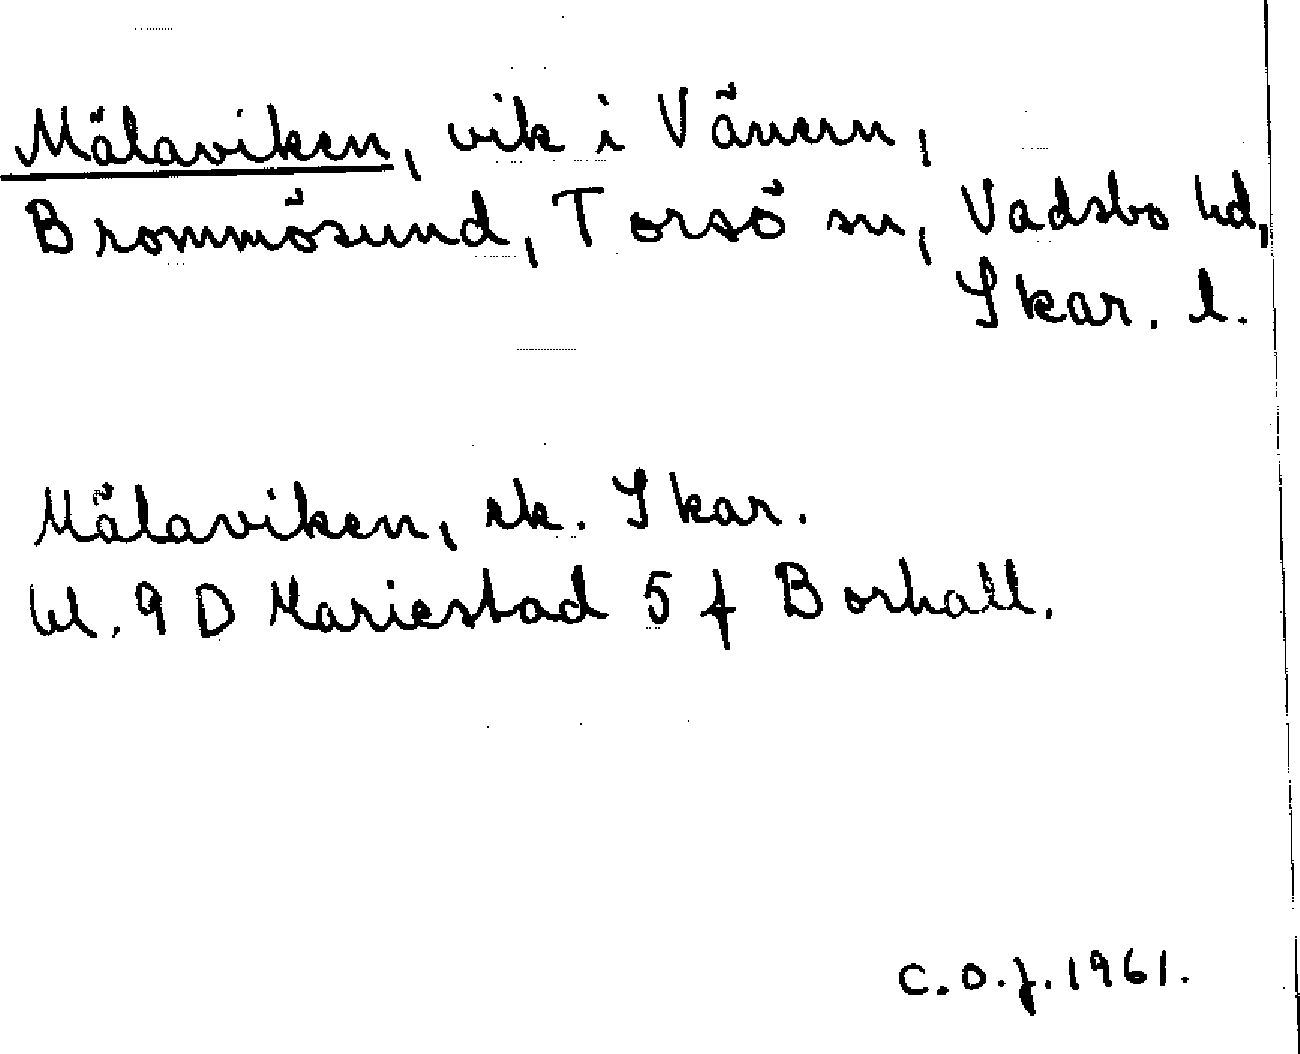 Mälaviken, vik i Vänern,
Brommösund, Torsö sn, Vadsbo hd,
Skar. l.
Mälaviken, ek. Skar.
bl. 9 D Mariestad 5 f Borhall.
C.O.J. 1961.